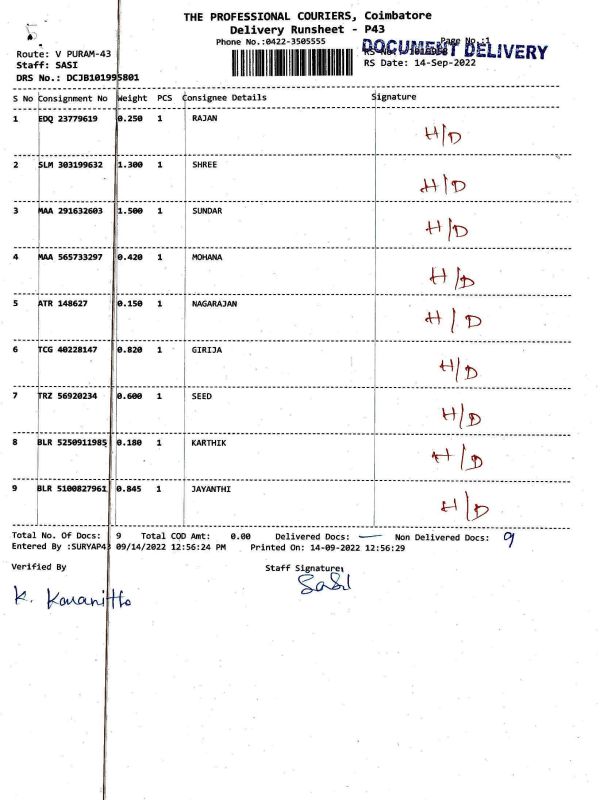 THE PROFESSIONAL COURIERS, Coimbatore
Delivery Runsheet - P43
Phone No.:0422-3505555
Page No.:1
DOCUMENT DELIVERY
Route: V PURAM-43
Staff: SASI
RS Date: 14-Sep-2022
DRS No.: DCJB101995801
S No Consignment No Weight PCS Consignee Details Signature
1 EDQ 23779619 0.250 1 RAJAN H/D
2 SLM 303199632 1.300 1 SHREE H/D
3 MAA 291632603 1.500 1 SUNDAR H/D
4 MAA 565733297 0.420 1 MOHANA H/D
5 ATR 148627 0.150 1 NAGARAJAN H/D
6 TCG 40228147 0.820 1 GIRIJA H/D
7 TRZ 56920234 0.600 1 SEED H/D
8 BLR 5250911985 0.180 1 KARTHIK H/D
9 BLR 5100827961 0.845 1 JAYANTHI H/D
Total No. Of Docs: 9 Total COD Amt: 0.00 Delivered Docs: — Non Delivered Docs: 9
Entered By :SURYAP43 09/14/2022 12:56:24 PM Printed On: 14-09-2022 12:56:29
Verified By Staff Signature:
SaSi
K.